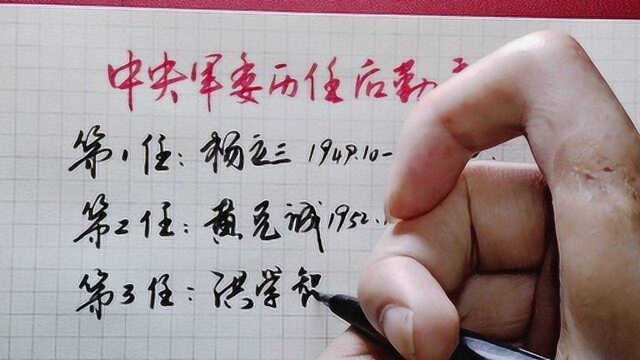 中央军委历任后勤
第1任：杨立三 1949.10-
第2任：黄克诚1952.1
第3任：洪学智